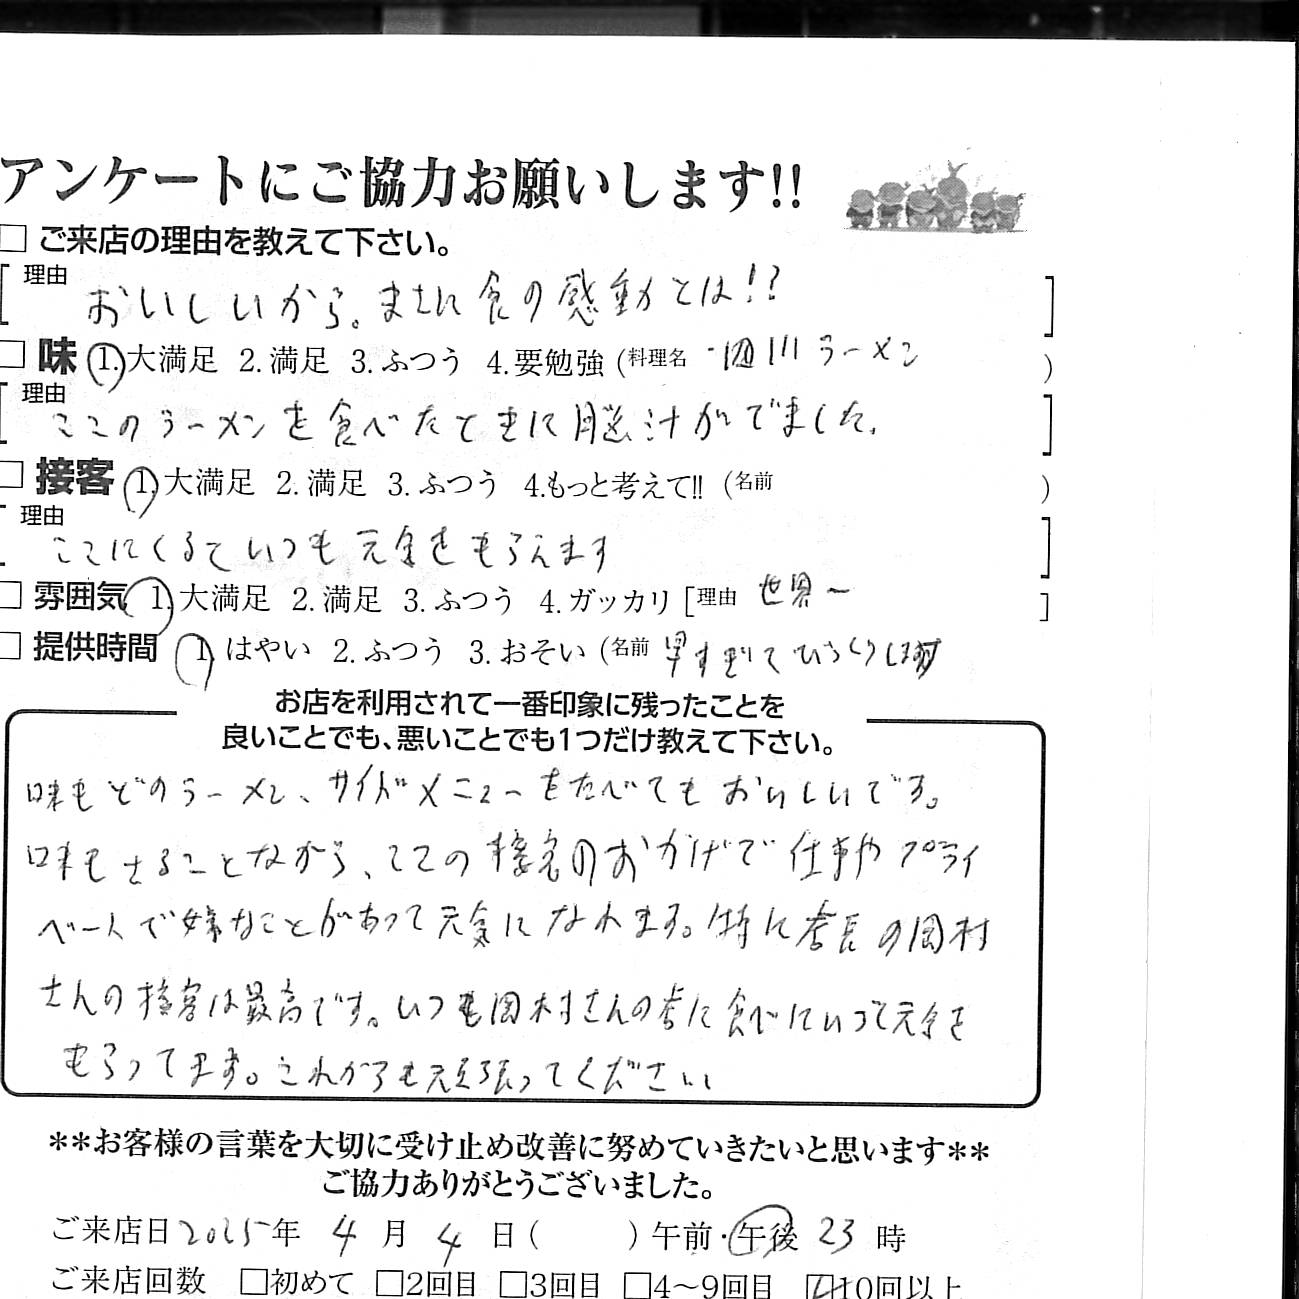 アンケートにご協力お願いします!!
□ ご来店の理由を教えて下さい。
理由 おいしいから。まさに食の感動とは!?
□ 味 1.大満足 2.満足 3.ふつう 4.要勉強 (料理名 ラーメン )
理由 ここのラーメンを食べたときに脳汁がでました。
□ 接客 1.大満足 2.満足 3.ふつう 4.もっと考えて!! (名前 )
理由 ここにくるといつも元気をもらえます
□ 雰囲気 1.大満足 2.満足 3.ふつう 4.ガッカリ [理由 世界一 ]
□ 提供時間 1.はやい 2.ふつう 3.おそい (名前 早すぎてびっくりします
お店を利用されて一番印象に残ったことを
良いことでも、悪いことでも1つだけ教えて下さい。
味もどのラーメン、サイドメニューをたべてもおいしいです。
味もさることながら、ここの接客のおかげで仕事やプライ
ベートで嫌なことがあって元気になれます。特に店長の岡村
さんの接客は最高です。いつも岡村さんの店に食べにいって元気を
もらってます。これからも頑張ってください
**お客様の言葉を大切に受け止め改善に努めていきたいと思います**
ご協力ありがとうございました。
ご来店日 2025年 4月 4日( ) 午前・午後 23時
ご来店回数 □初めて □2回目 □3回目 □4〜9回目 □10回以上